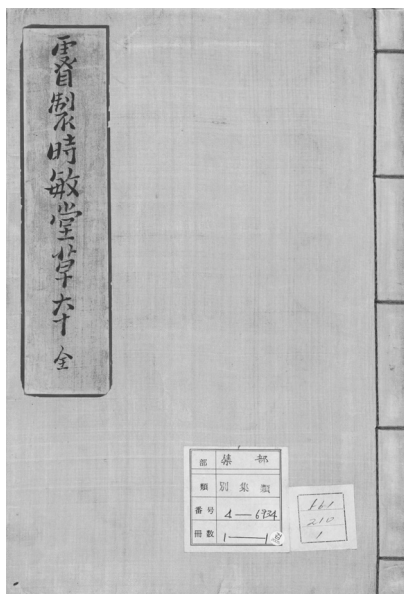 睿製時敏堂草本 全
部 集部
類 別集類
番号 4—6934
冊数 1—1
210
1